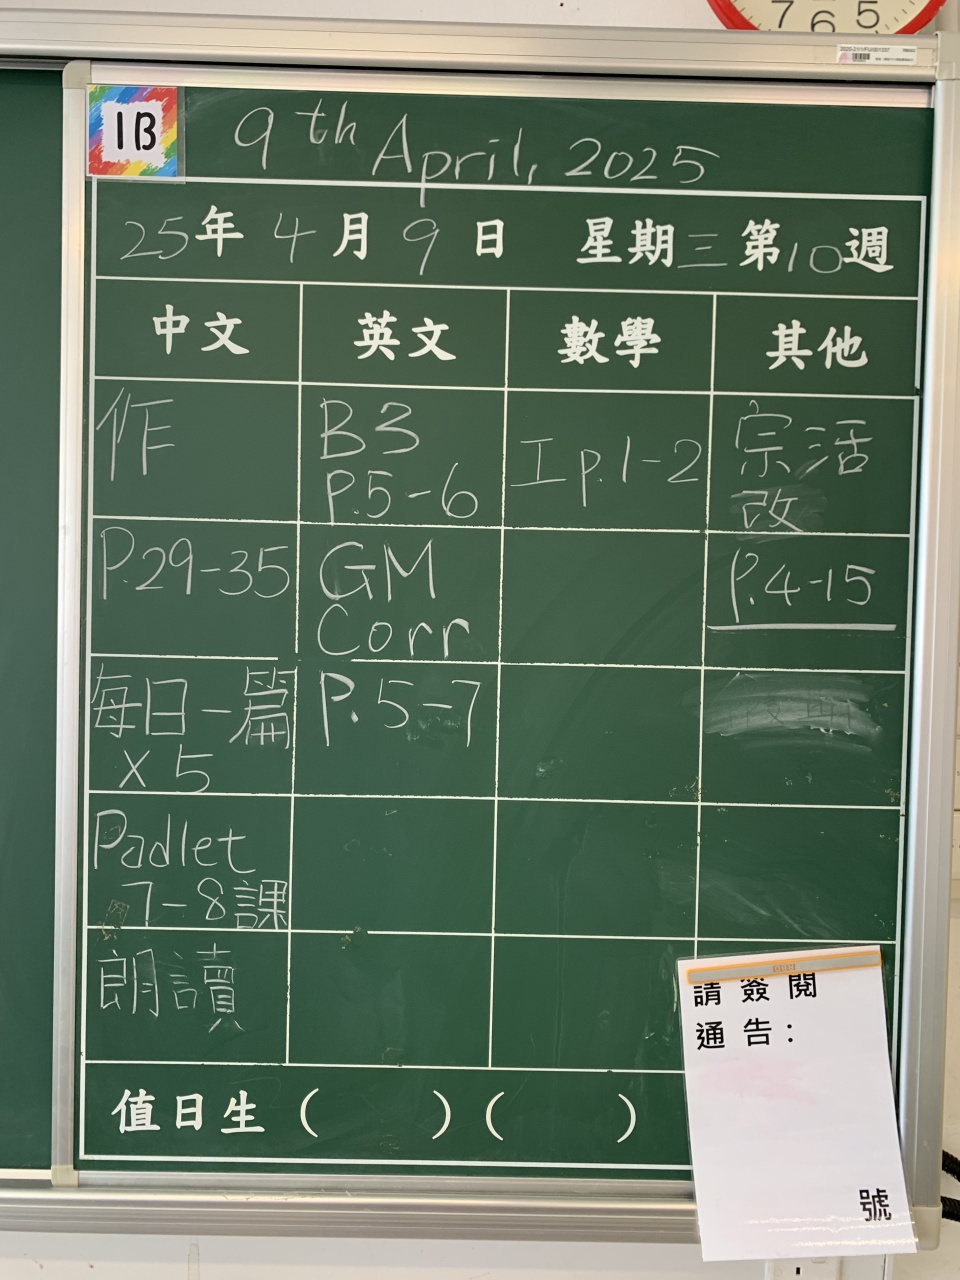 7 6 5
1B
9th April, 2025
25年4月9日 星期三第10週
中文 英文 數學 其他
作
P.29-35
每日一篇
x 5
Padlet
7-8課
朗讀
B3
P.5-6
GM
Corr
P.5-7
工p.1-2
宗活
改
P.4-15
值日生 ( ) ( )
請簽閱
通告：
號